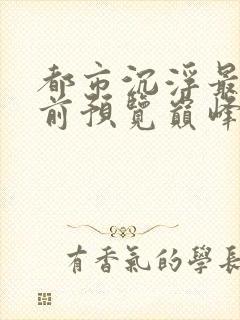 都市沉浮最
前預覽巔峰
有香氣的學長